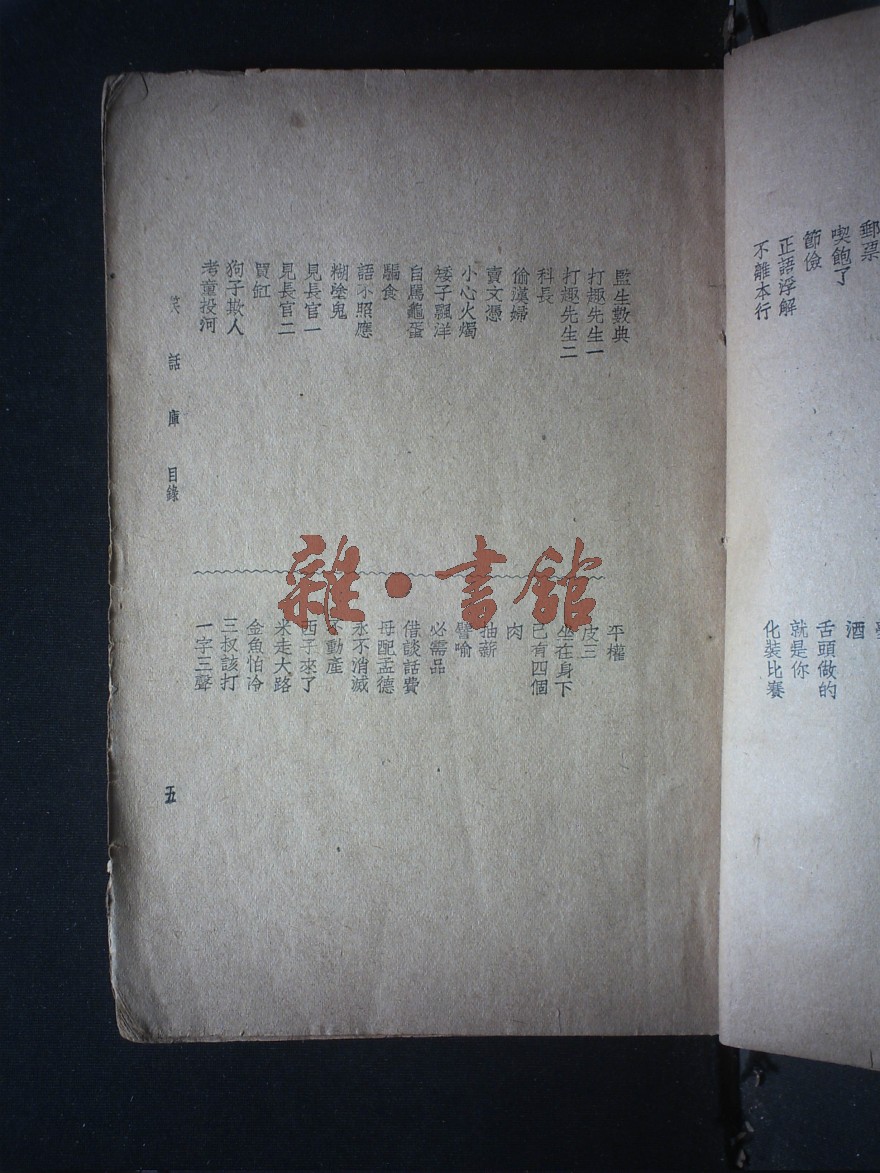 郵票
喫飽了
節儉
正語浮解
不離本行
酒
舌頭做的
就是你
化裝比賽
監生數典
打趣先生一
打趣先生二
科長
偷漢婦
賣文憑
小心火燭
矮子飄洋
自罵龜蛋
騙食
語不照應
糊塗鬼
見長官一
見長官二
買缸
狗子欺人
考童投河
平權
皮三
坐在身下
已有四個
肉
抽薪
譬喻
必需品
借談話費
毋配孟德
永不消滅
不動產
西子來了
米走大路
金魚怕冷
三叔該打
一字三聲
笑話庫 目錄
五
雜·書館